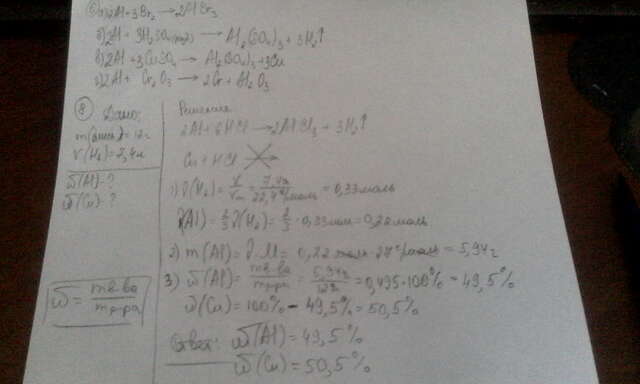 ⑥ а) 2Al + 3Br₂ → 2AlBr₃
б) 2Al + 3H₂SO₄ → Al₂(SO₄)₃ + 3H₂↑
в) 2Al + 3CuSO₄ → Al₂(SO₄)₃ + 3Cu
г) 2Al + Cr₂O₃ → 2Cr + Al₂O₃
⑧ Дано:
m(смеси) = 12г
V(H₂) = 7,4л
ω(Al) = ?
ω(Cu) = ?
ω = mв-ва / mр-ра
Решение
2Al + 6HCl → 2AlCl₃ + 3H₂↑
Cu + HCl
1) ν(H₂) = V/Vm = 7,4л / 22,4л/моль = 0,33 моль
ν(Al) = 2/3 ν(H₂) = 2/3 · 0,33 моль = 0,22 моль
2) m(Al) = ν · M = 0,22 моль · 27г/моль = 5,94г
3) ω(Al) = mв-ва / mр-ра = 5,94г / 12г = 0,495 · 100% = 49,5%
ω(Cu) = 100% - 49,5% = 50,5%
Ответ: ω(Al) = 49,5%
ω(Cu) = 50,5%